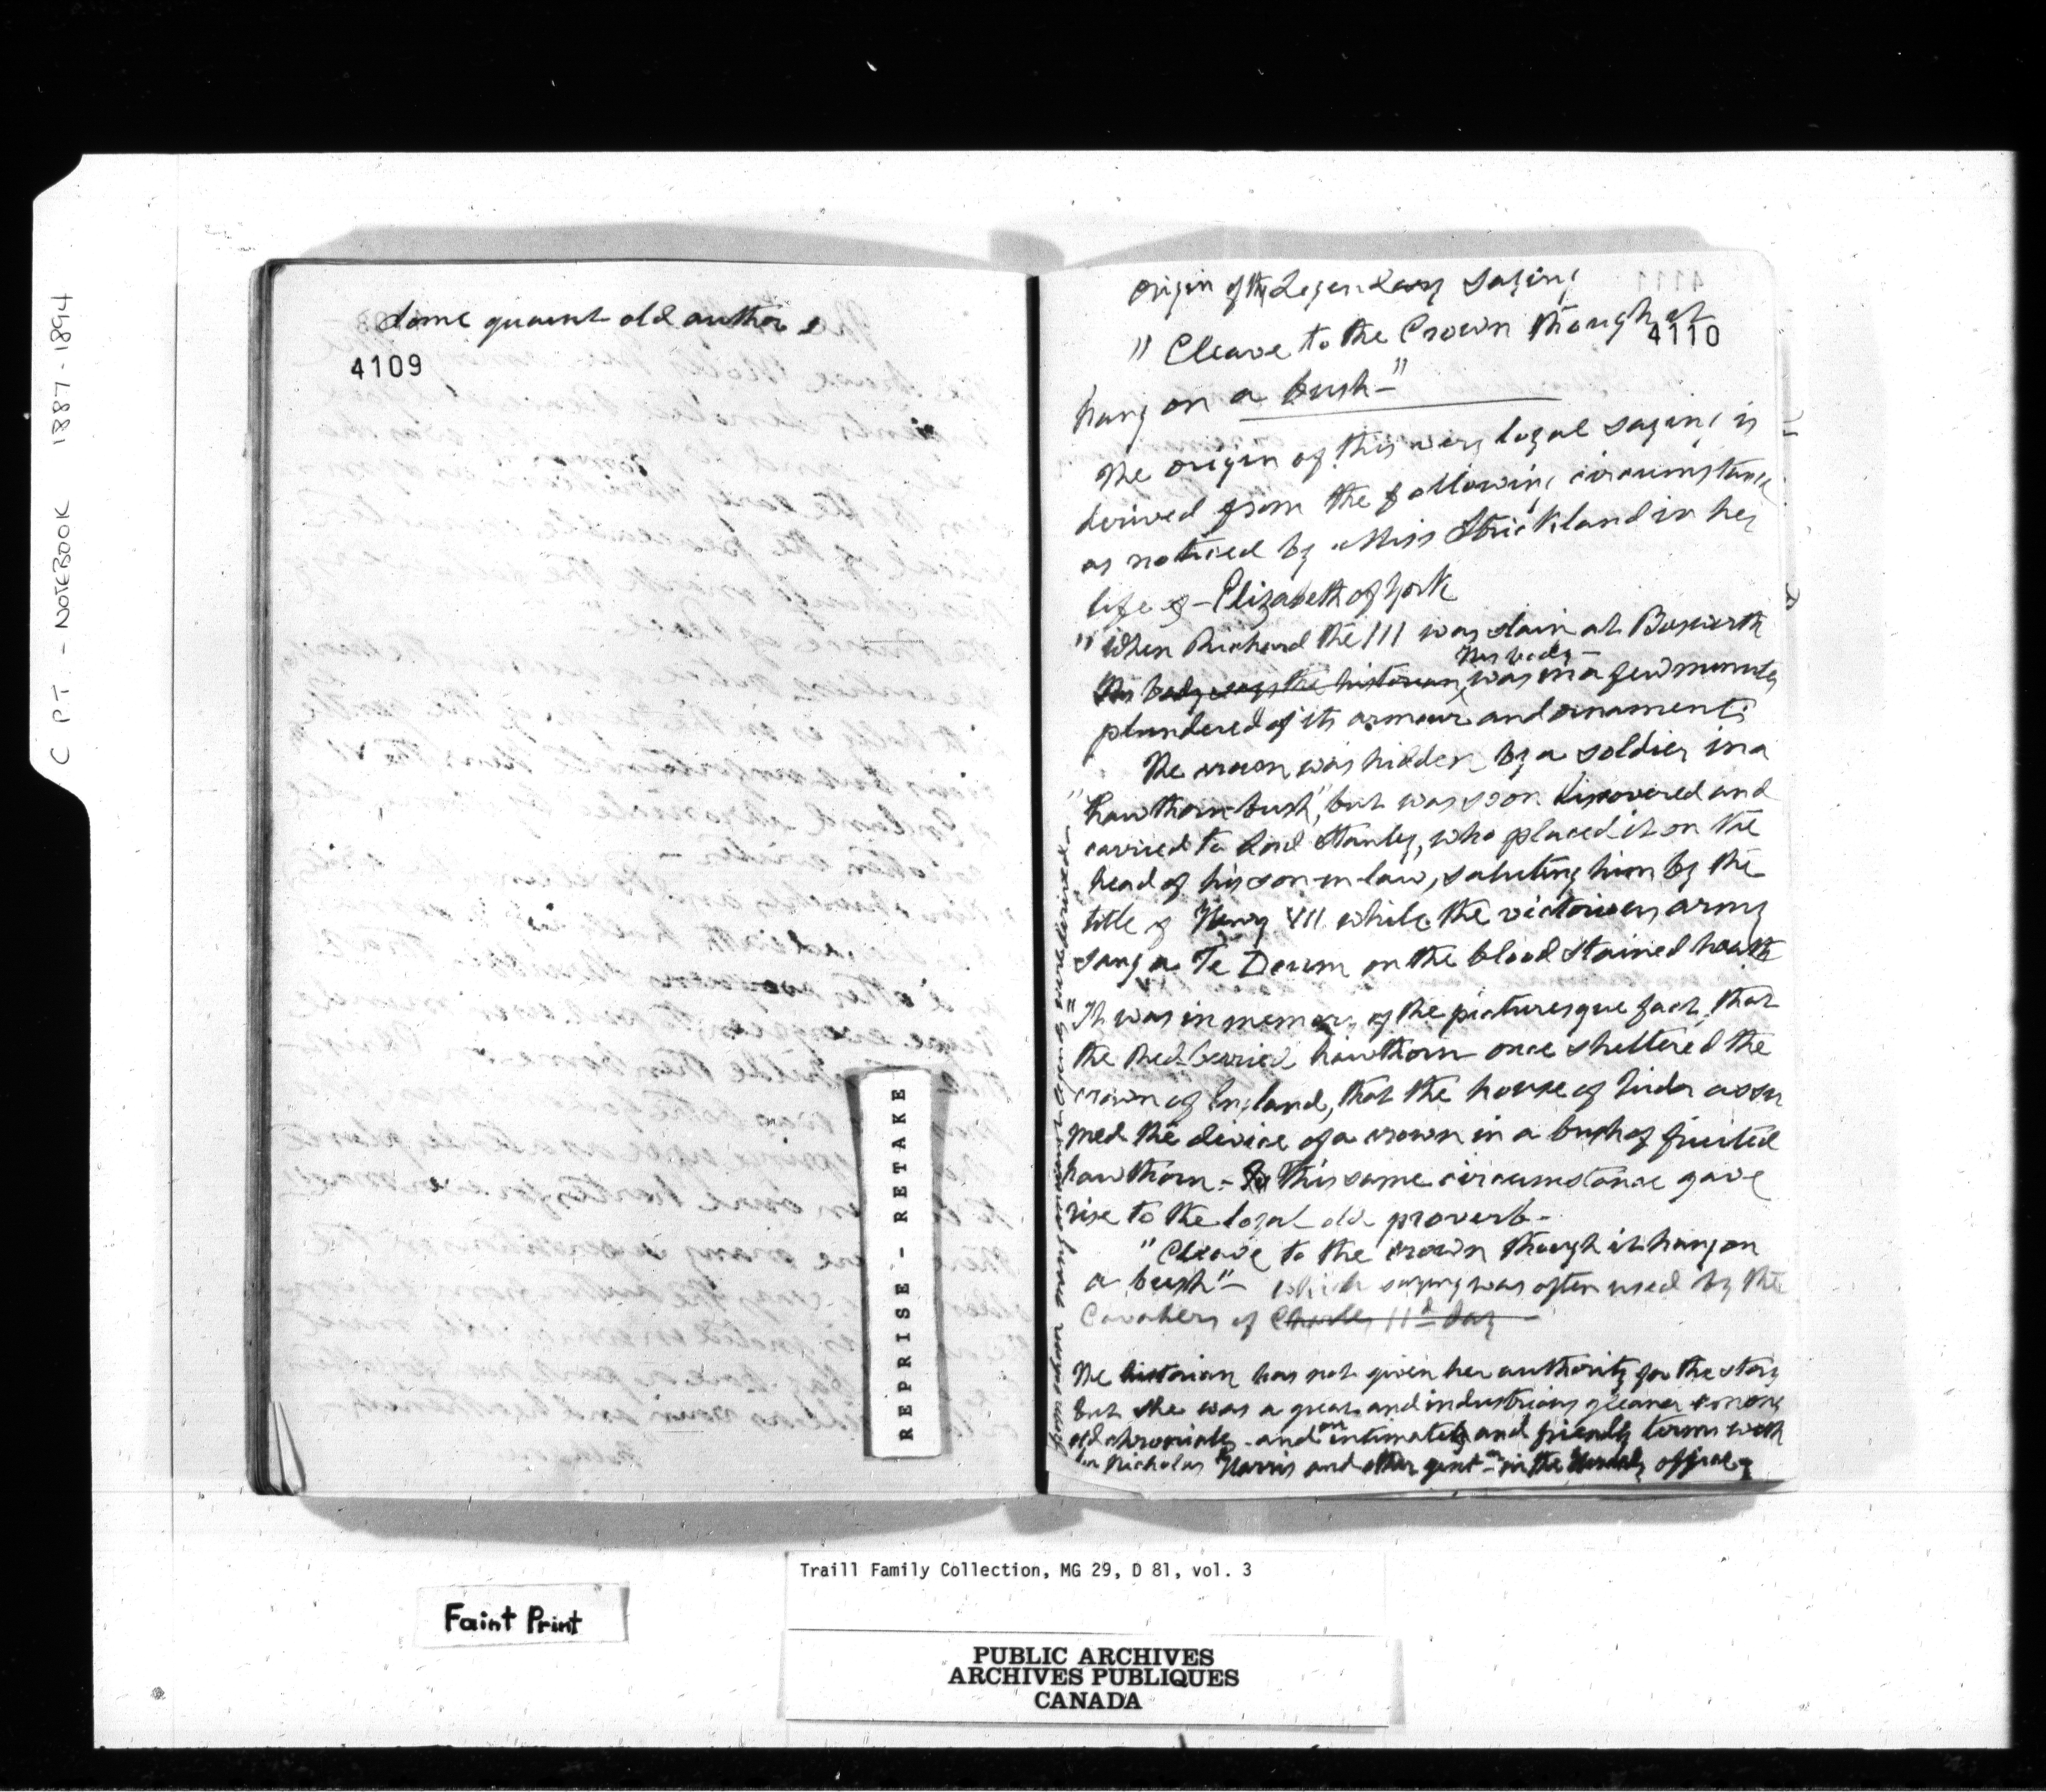 C P T - NOTEBOOK 1887-1894
Some quaint old author s
4109
Origin of the Legendary Saying
4110
" Cleave to the Crown though it
hang on a bush - "
The origin of this very loyal saying is
derived from the following circumstance
as noticed by Miss Strickland in her
life of - Elizabeth of York
" When Richard the III was slain at Bosworth
his body -
His body says the historian, was in a few minutes
plundered of its armour and ornaments
The crown was hidden by a soldier in a
" hawthorn-bush", but was soon discovered and
carried to Lord Stanley, who placed it on the
head of his son-in-law, saluting him by the
title of Henry VII while the victorious army
sang a Te Deum on the blood stained heath
"It was in memory of the picturesque fact, that
the red-berried hawthorn once sheltered the
crown of England, that the house of Tudor assu
med the device of a crown in a bush of fruited
hawthorn - To this same circumstance gave
rise to the loyal old proverb -
" Cleave to the crown though it hang on
a bush" - which saying was often used by the
Cavaliers of Charles IId day
The historian has not given her authority for the story
but she was a great and industrious gleaner among
old chronicles - and on intimate and friendly terms with
Sir Nicholas Harris and other gent - in the Heralds office -
REPRISE - RETAKE
Traill Family Collection, MG 29, D 81, vol. 3
Faint Print
PUBLIC ARCHIVES
ARCHIVES PUBLIQUES
CANADA